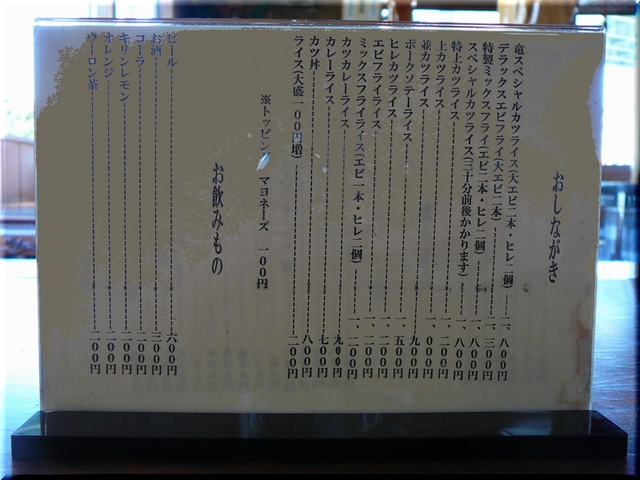 おしながき
竜スペシャルカツライス(大エビ二本・ヒレ二個) 二、八00円
デラックスエビフライ(大エビ二本) 二、三00円
特製ミックスフライ(エビ二本・ヒレ二個) 一、八00円
スペシャルカツライス(三十分前後かかります) 一、八00円
特上カツライス 一、二00円
上カツライス 一、000円
並カツライス 九00円
ポークソテーライス 一、五00円
ヒレカツライス 一、二00円
エビフライライス 一、二00円
ミックスフライライス(エビ一本・ヒレ二個) 一、二00円
カツカレーライス 九00円
カレーライス 七00円
カツ丼 八00円
ライス(大盛一00円増) 二00円
※トッピング マヨネーズ 一00円
お飲みもの
ビール 六00円
お酒 三00円
コーラ 二00円
キリンレモン 二00円
オレンジ 二00円
ウーロン茶 二00円